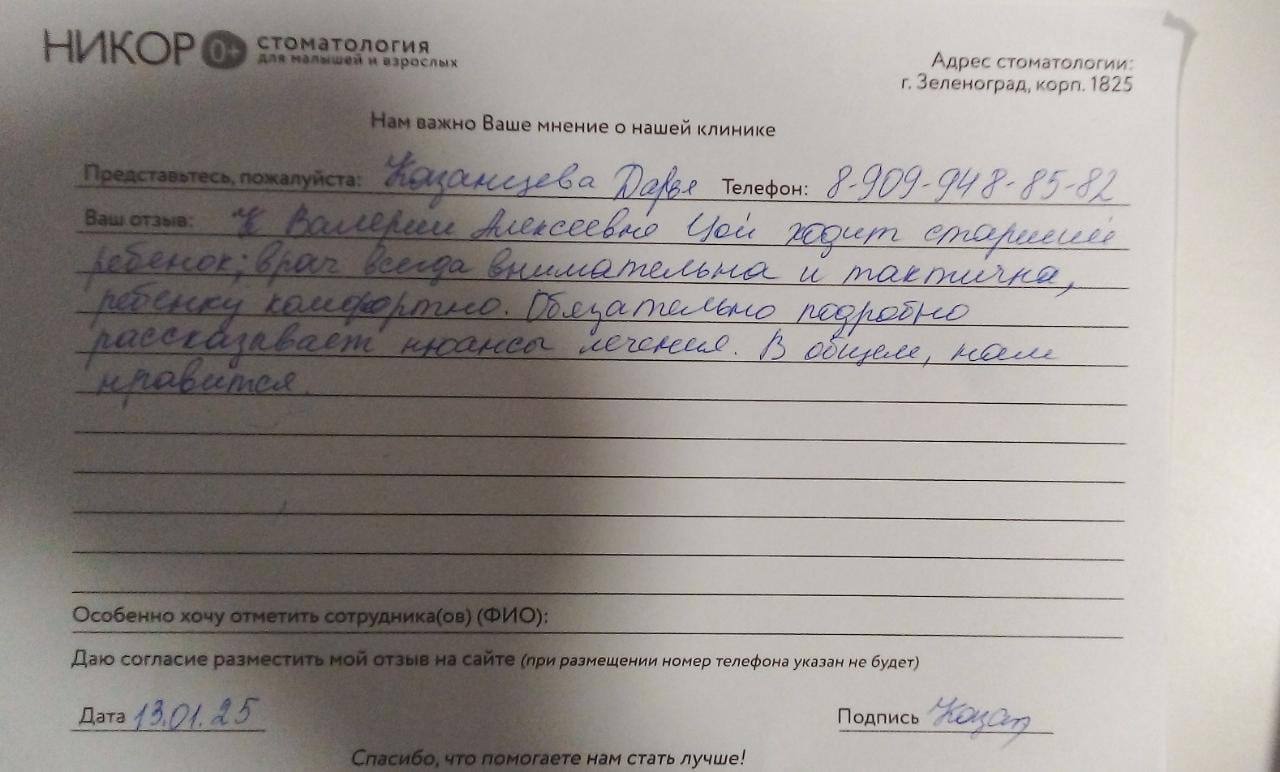 НИКОР 0+ СТОМАТОЛОГИЯ
для малышей и взрослых
Адрес стоматологии:
г. Зеленоград, корп. 1825
Нам важно Ваше мнение о нашей клинике
Представьтесь, пожалуйста: Казанцева Дарья Телефон: 8-909-948-85-82
Ваш отзыв: К Валерии Алексеевне Цой ходит старший
ребенок; врач всегда внимательна и тактична,
ребенку комфортно. Обязательно подробно
рассказывает нюансы лечения. В общем, нам
нравится.
Особенно хочу отметить сотрудника(ов) (ФИО):
Даю согласие разместить мой отзыв на сайте (при размещении номер телефона указан не будет)
Дата 13.01.25 Подпись Казан
Спасибо, что помогаете нам стать лучше!